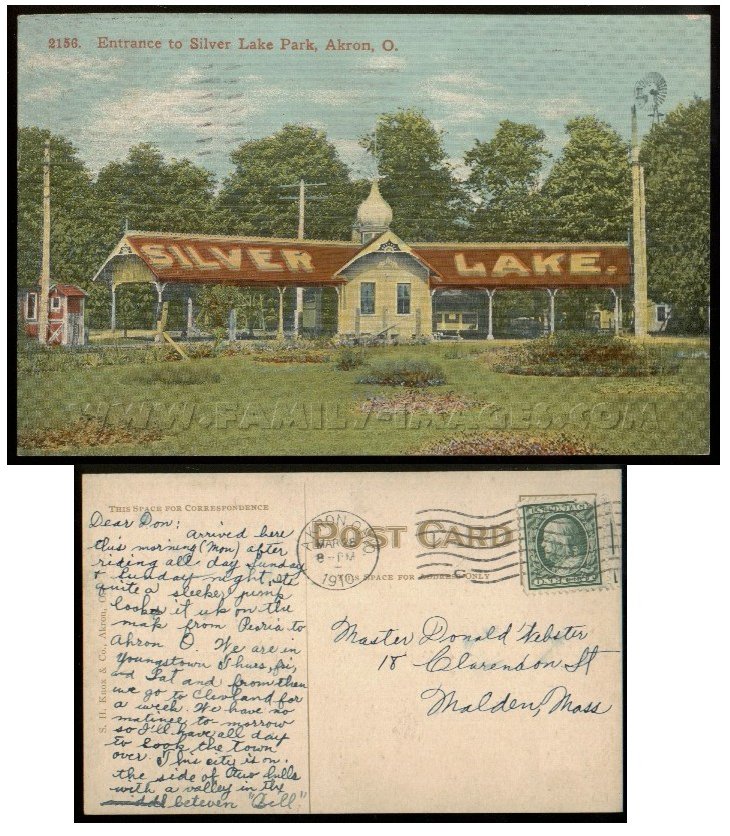 2156. Entrance to Silver Lake Park, Akron, O.
SILVER LAKE.
WWW.FAMILY-IMAGES.COM
THIS SPACE FOR CORRESPONDENCE
Dear Don:
arrived here
this morning (Mon) after
riding all day Sunday
& Sunday night. Its
quite a sleeper jump
look it up on the
map from Peoria to
Akron O. We are in
Youngstown Thurs, fri,
and Sat and from then
we go to Clevland for
a week. We have no
matinee to-morrow
so I'll have all day
to look the town
over. This city is on
the side of two hills
with a valley in the
between "Bill"
S. H. KNOX & CO., Akron,
POST CARD
THIS SPACE FOR ADDRESS ONLY
AKRON, OHIO
MAR
8-PM
1910
U.S. POSTAGE
ONE CENT
Master Donald Webster
18 Clarendon St
Malden, Mass